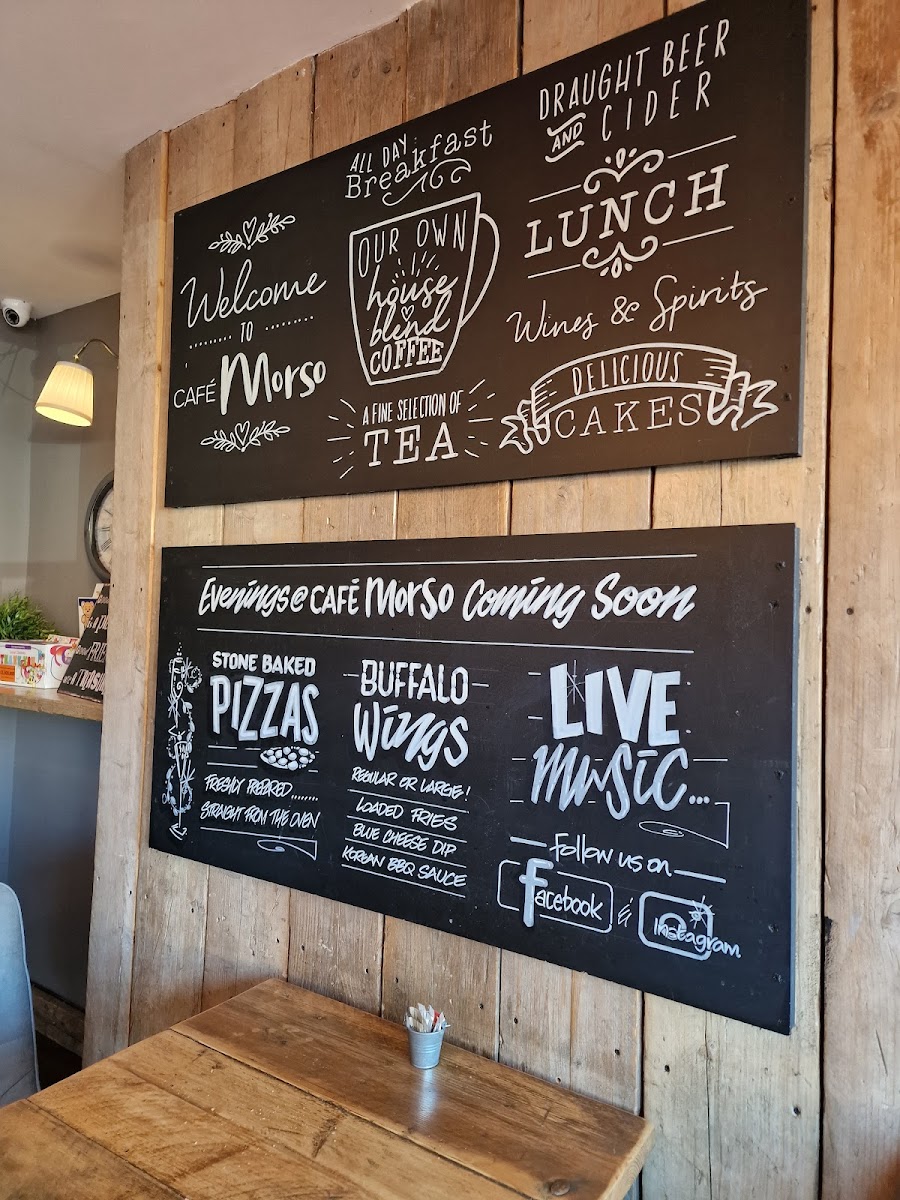 Welcome
TO
CAFÉ Morso
ALL DAY
Breakfast
OUR OWN
house
blend
COFFEE
A FINE SELECTION OF
TEA
DRAUGHT BEER
AND CIDER
LUNCH
Wines & Spirits
DELICIOUS
CAKES
Evenings @ CAFÉ Morso Coming Soon
STONE BAKED
PIZZAS
FRESHLY PREPARED........
STRAIGHT FROM THE OVEN
BUFFALO
Wings
REGULAR OR LARGE!
LOADED FRIES
BLUE CHEESE DIP
KOREAN BBQ SAUCE
LIVE
Music...
Follow us on
Facebook & Instagram